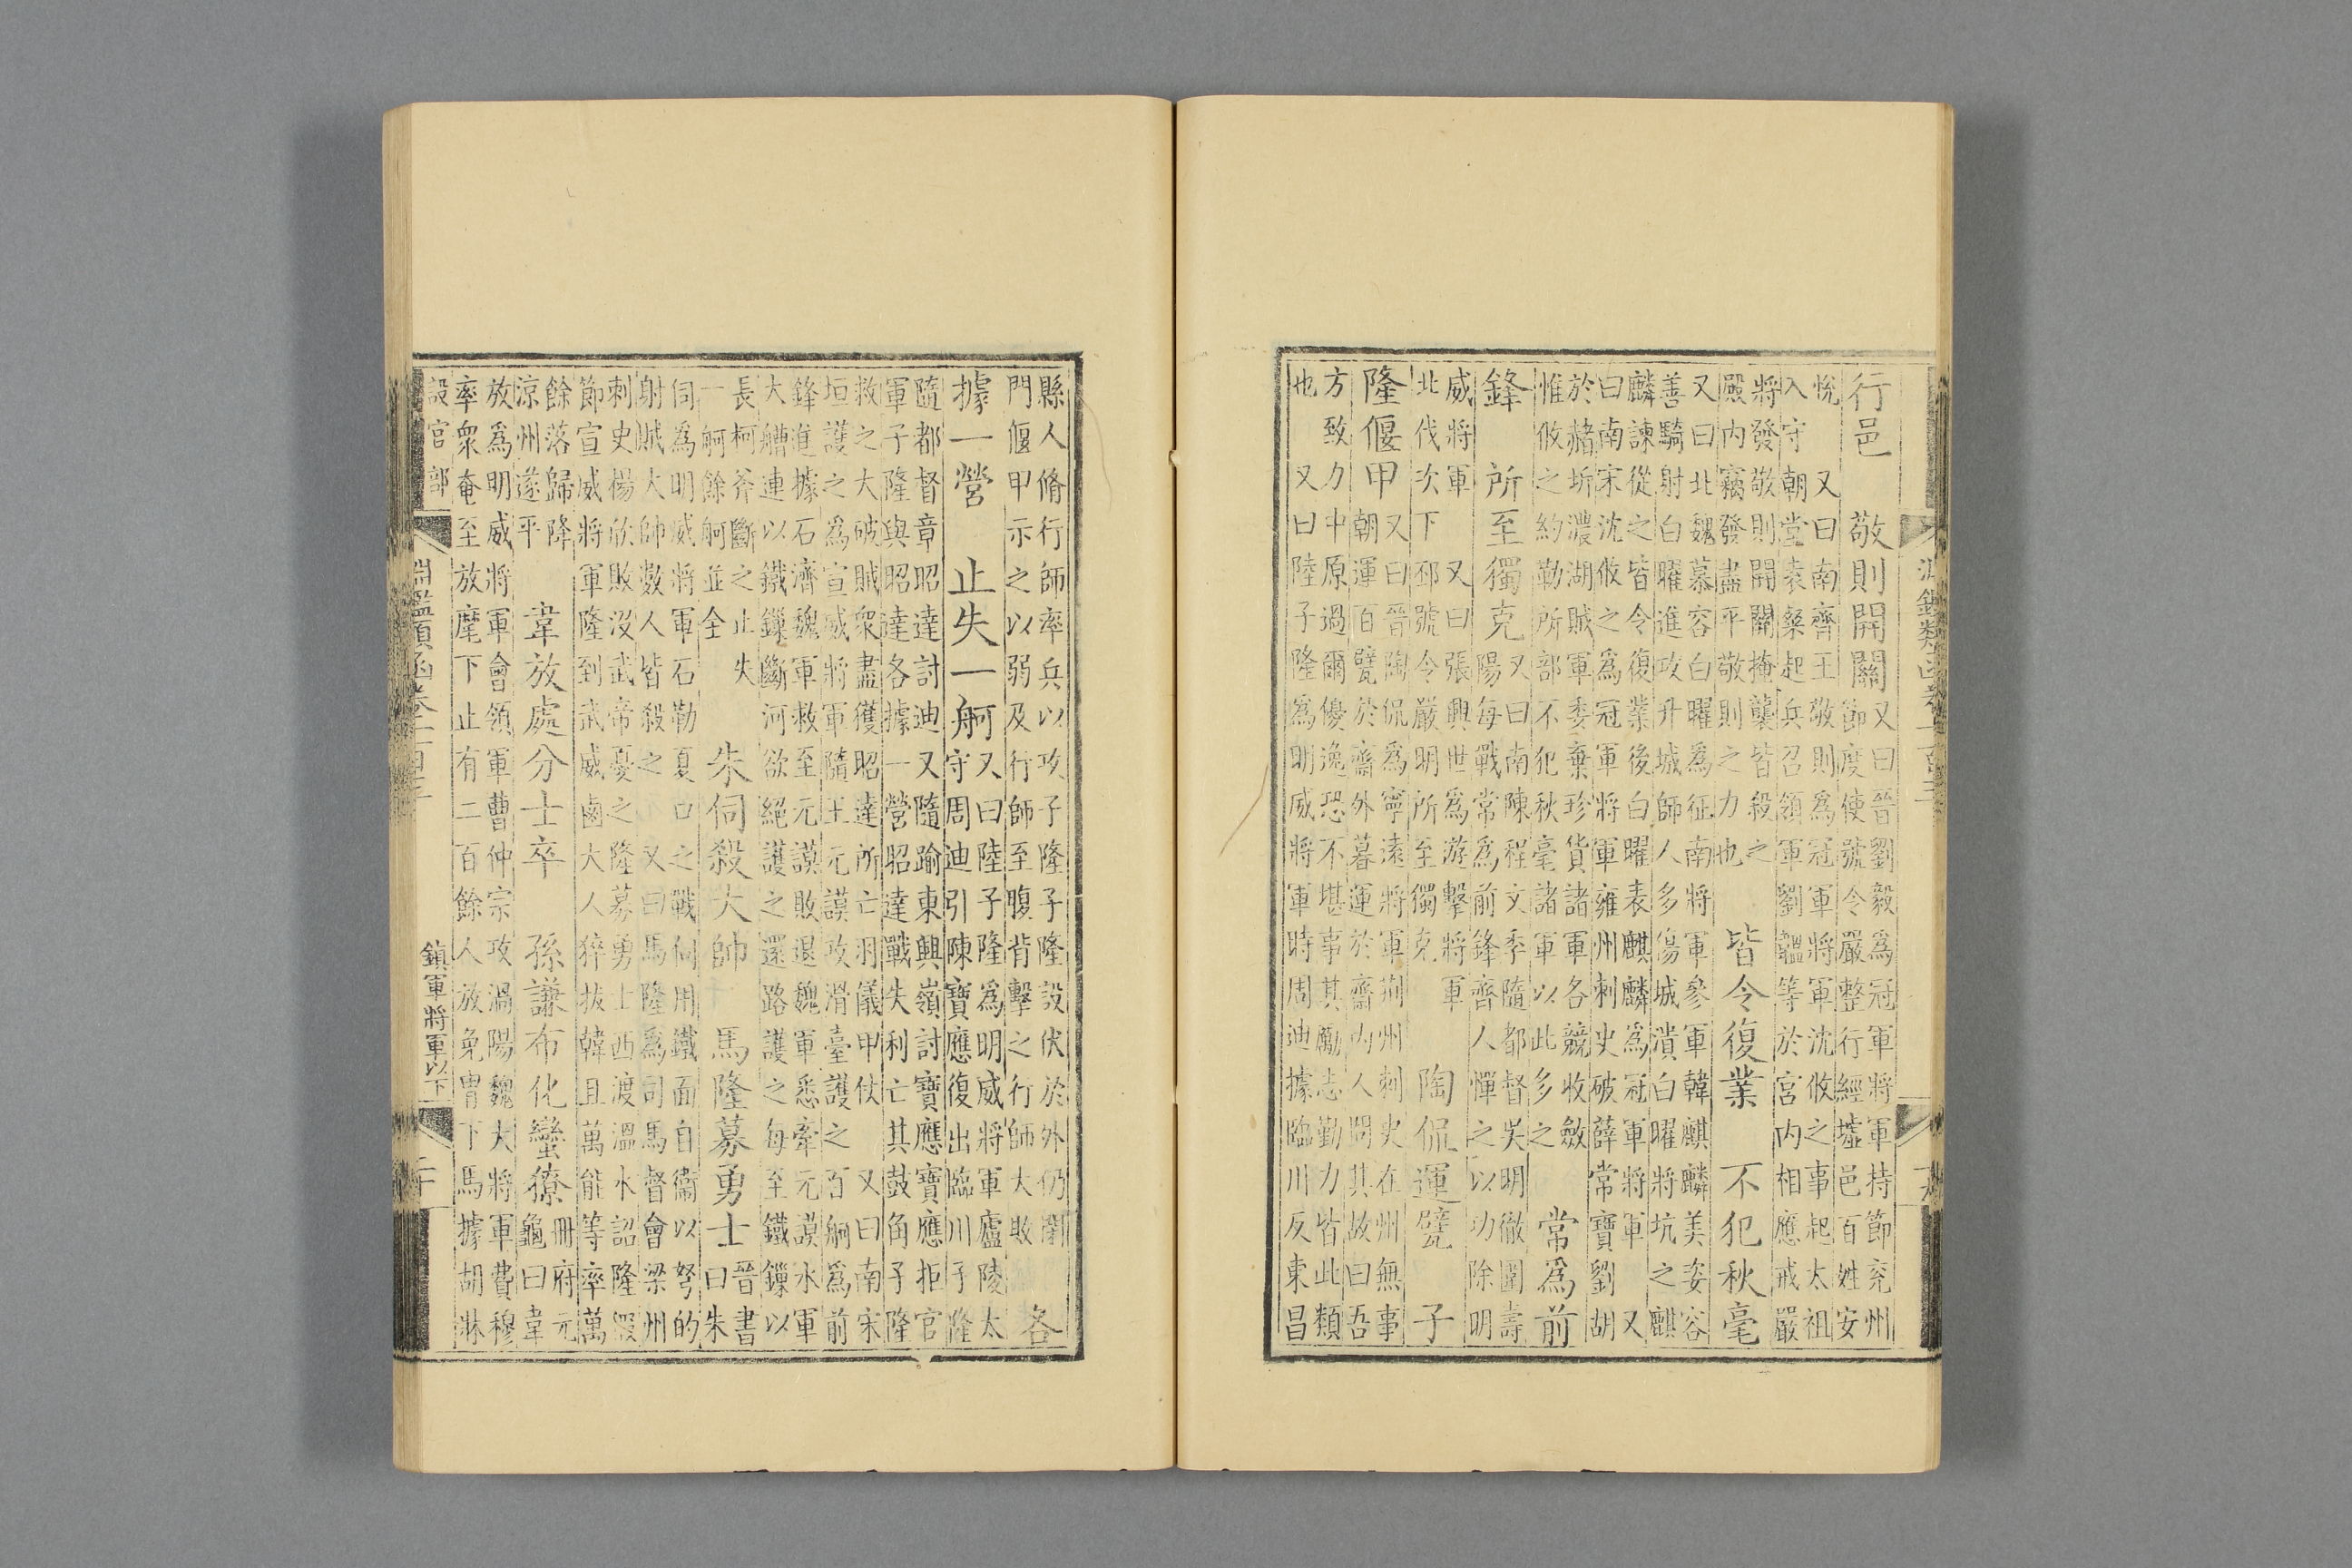 行邑　敬則開關
又曰晉劉毅為冠軍將軍持節兗州
節度使號令嚴整行經墟邑百姓安
悅　又曰南齊王敬則為冠軍將軍沈攸之事起太祖
入守朝堂袁粲起兵召領軍劉韞等於宮內相應戒嚴
將發敬則開關掩襲皆殺之
殿內竊發盡平敬則之力也
皆令復業　不犯秋毫
又曰北魏慕容白曜為征南將軍參軍韓麒麟美姿容
善騎射白曜進攻升城師人多傷城潰白曜將坑之麒
麟諫從之皆令復業後白曜表麒麟為冠軍將軍　又
曰南宋沈攸之為冠軍將軍雍州刺史破薛常寶劉胡
於赭圻濃湖賊軍委棄珍貨諸軍各競收斂
惟攸之約勒所部不犯秋毫諸軍以此多之
常為前
鋒　所至獨克
又曰南陳程文季隨都督吳明徹圍壽
陽每戰常為前鋒齊人憚之以功除明
威將軍　又曰張興世為游擊將軍
北伐次下邳號令嚴明所至獨克
陶侃運甓　子
隆偃甲
又曰晉陶侃為寧遠將軍荊州刺史在州無事
朝運百甓於齋外暮運於齋內人問其故曰吾
方致力中原過爾優逸恐不堪事其勵志勤力皆此類
也　又曰陸子隆為明威將軍時周迪據臨川反東昌
縣人脩行師率兵以攻子隆子隆設伏於外仍閉
門偃甲示之以弱及行師至腹背擊之行師大敗
各
據一營　止失一舸
又曰陸子隆為明威將軍廬陵太
守周迪引陳寶應復出臨川子隆
隨都督章昭達討迪又隨踰東興嶺討寶應寶應拒官
軍子隆與昭達各據一營昭達戰失利亡其鼓角子隆
救之大破賊衆盡獲昭達所亡羽儀甲仗　又曰南宋
垣護之為宣威將軍隨王元謨攻滑臺護之百舸為前
鋒進據石濟魏軍救至元謨敗退魏軍悉牽元謨水軍
大艚連以鐵鏁斷河欲絕護之還路護之每至鐵鏁以
長柯斧斷之止失
一舸餘舸並全
朱伺殺大帥　馬隆募勇士
晉書
曰朱
伺為明威將軍石勒夏口之戰伺用鐵面自衞以弩的
射賊大帥數人皆殺之　又曰馬隆為司馬督會梁州
刺史楊欣敗沒武帝憂之隆募勇士西渡溫水詔隆假
節宣威將軍隆到武威鹵大人猝拔韓且萬能等率萬
餘落歸降
涼州遂平
韋放處分士卒　孫謙布化蠻獠
冊府元
龜曰韋
放為明威將軍會領軍曹仲宗攻渦陽魏大將軍費穆
率衆奄至放麾下止有二百餘人放免冑下馬據胡牀
設官部
淵鑑類函卷
鎮軍將軍以下
二十